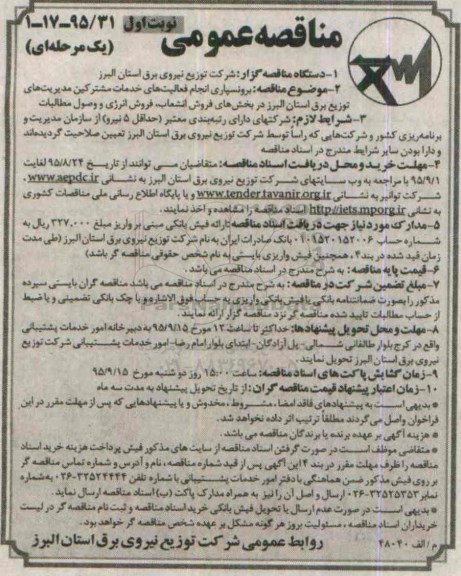 نوبت اول ۹۵/۳۱-۱۷-۱
مناقصه عمومی (یک مرحله‌ای)
۱-دستگاه مناقصه گزار: شرکت توزیع نیروی برق استان البرز
۲-موضوع مناقصه: برونسپاری انجام فعالیت‌های خدمات مشترکین مدیریت‌های
توزیع برق استان البرز در بخش‌های فروش انشعاب، فروش انرژی و وصول مطالبات
۳-شرایط لازم: شرکتهای دارای رتبه‌بندی معتبر (حداقل ۵ نیرو) از سازمان مدیریت و
برنامه‌ریزی کشور و شرکت‌هایی که راساً توسط شرکت توزیع نیروی برق استان البرز تعیین صلاحیت گردیده‌اند
و دارا بودن سایر شرایط مندرج در اسناد مناقصه
۴-مهلت خرید و محل دریافت اسناد مناقصه: متقاضیان می توانند از تاریخ ۹۵/۸/۲۴ لغایت
۹۵/۹/۱ با مراجعه به وب سایتهای شرکت توزیع نیروی برق استان البرز به نشانی www.aepdc.ir،
شرکت توانیر به نشانی www.tender.tavanir.org.ir و یا پایگاه اطلاع رسانی ملی مناقصات کشوری
به نشانی http://iets.mporg.ir اسناد مناقصه را مشاهده و اخذ نمایند.
۵-مدارک مورد نیاز جهت دریافت اسناد مناقصه: ارائه فیش بانکی مبنی بر واریز مبلغ ۳۲۷,۰۰۰ ریال به
شماره حساب ۰۱۰۱۵۲۰۱۵۲۰۰۶ بانک صادرات ایران به نام شرکت توزیع نیروی برق استان البرز (طی مدت
زمان قید شده در بند ۴، همچنین فیش واریزی بایستی به نام شخص حقوقی مناقصه گر باشد)
۶-قیمت پایه مناقصه: به شرح مندرج در اسناد مناقصه می باشد.
۷-مبلغ تضمین شرکت در مناقصه: به شرح مندرج در اسناد مناقصه می باشد. مناقصه گران بایستی سپرده
مذکور را بصورت ضمانتنامه بانکی یا فیش بانکی واریزی به حساب فوق الاشاره و یا چک بانکی تضمینی و یا ضبط
از حساب مطالبات تایید شده مناقصه گر نزد مناقصه گزار ارائه نمایند.
۸-مهلت و محل تحویل پیشنهادها: حداکثر تا ساعت ۱۲ مورخ ۹۵/۹/۱۵ به دبیرخانه امور خدمات پشتیبانی
واقع در کرج بلوار طالقانی شمالی-پل آزادگان-ابتدای بلوار امام رضا-امور خدمات پشتیبانی شرکت توزیع
نیروی برق استان البرز تحویل نمایند.
۹-زمان گشایش پاکت های اسناد مناقصه: ساعت ۱۵:۰۰ روز دو شنبه مورخ ۹۵/۹/۱۵
۱۰-زمان اعتبار پیشنهاد قیمت مناقصه گران: از تاریخ تحویل پیشنهاد به مدت سه ماه
* بدیهی است به پیشنهادهای فاقد امضاء، مشروط، مخدوش و یا پیشنهادهایی که پس از مهلت مقرر در این
فراخوان واصل می گردند مطلقاً ترتیب اثر داده نخواهد شد.
* هزینه آگهی بر عهده برنده یا برندگان مناقصه می باشد.
* متقاضی موظف است در صورت گرفتن اسناد مناقصه از سایت های مذکور فیش پرداخت هزینه خرید اسناد
مناقصه را ظرف مهلت مقرر در بند ۴ این آگهی پس از قید شماره مناقصه، نام و آدرس و شماره تماس مناقصه گر
بر روی فیش مذکور ضمن هماهنگی با دفتر امور خدمات پشتیبانی با شماره تلفن ۳۲۵۲۴۴۴۴-۰۲۶ به شماره
نمابر ۳۲۵۲۵۳۵۳-۰۲۶ ارسال و اصل آن را نیز به همراه مدارک پاکت (ب) اسناد مناقصه ارسال نماید.
* بدیهی است در صورت عدم ارسال یا تحویل فیش بانکی خرید اسناد مناقصه و ثبت نام مناقصه گر در لیست
خریداران اسناد مناقصه، مسئولیت بروز هر گونه مشکل بر عهده شخص مناقصه گر خواهد بود.
م/الف ۴۸۰۴۰ روابط عمومی شرکت توزیع نیروی برق استان البرز